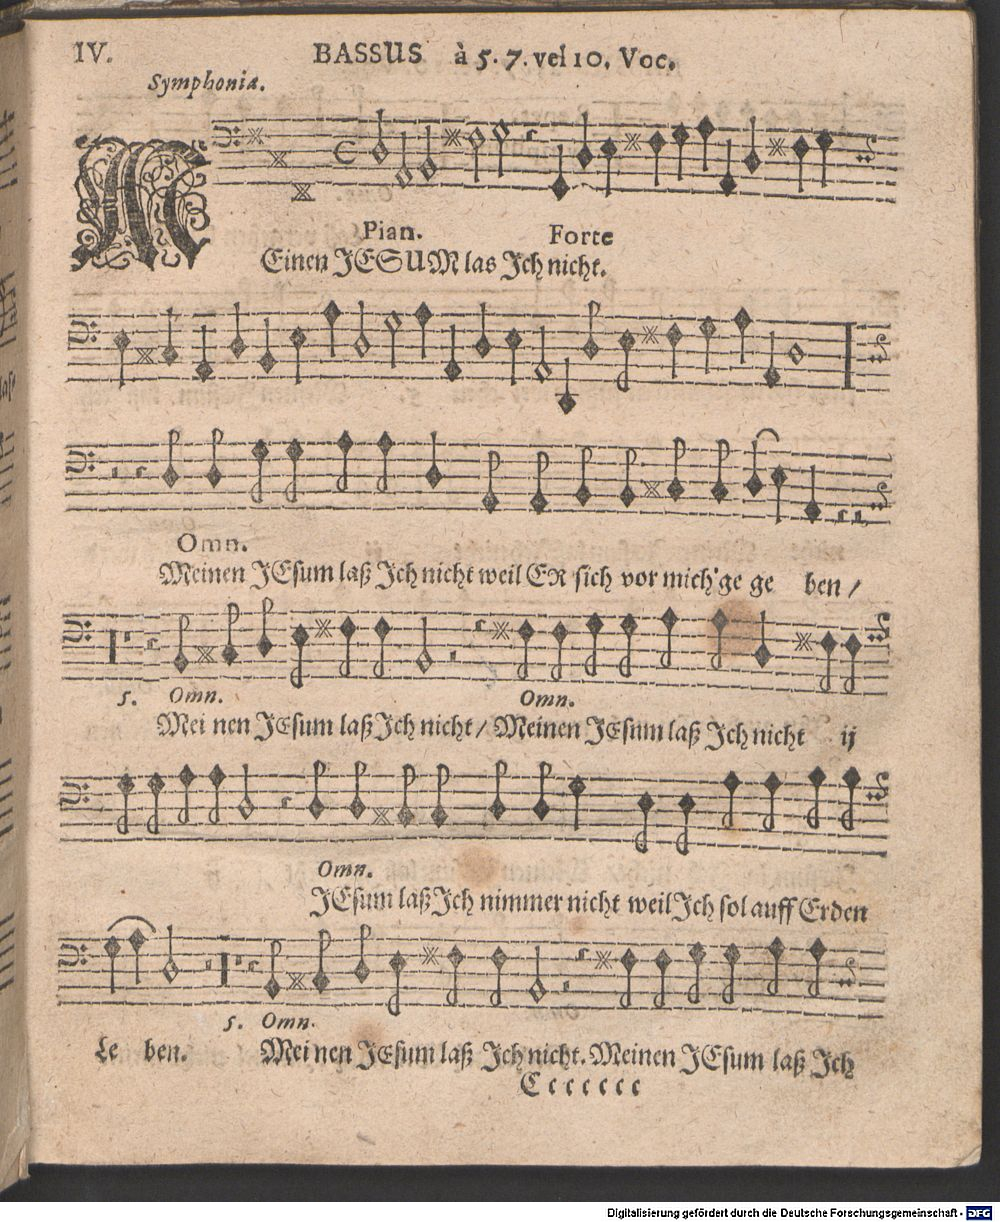 IV. BASSUS à 5. 7. vel 10. Voc.
Symphoniæ.
Pian. Forte
MEinen JESUM las Ich nicht.
Omn.
Meinen JEsum laß Ich nicht weil ER sich vor mich ge ge ben /
5. Omn. Omn.
Mei nen JEsum laß Ich nicht / Meinen JEsum laß Ich nicht ij
Omn.
JEsum laß Ich nimmer nicht weil Ich sol auff Erden
5. Omn.
Le ben. Mei nen JEsum laß Ich nicht. Meinen JEsum laß Ich
C c c c c c c
Digitalisierung gefördert durch die Deutsche Forschungsgemeinschaft - DFG